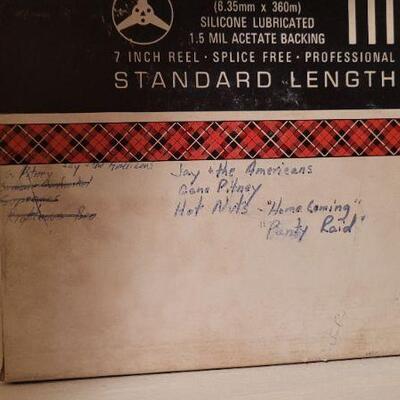 (6.35mm x 360m)
SILICONE LUBRICATED
1.5 MIL ACETATE BACKING
7 INCH REEL · SPLICE FREE · PROFESSIONAL
STANDARD LENGTH
G. Pitney Jay - the Americans
Supremes
Jay & the Americans
Gene Pitney
Hot Nuts - "Home Coming"
"Panty Raid"